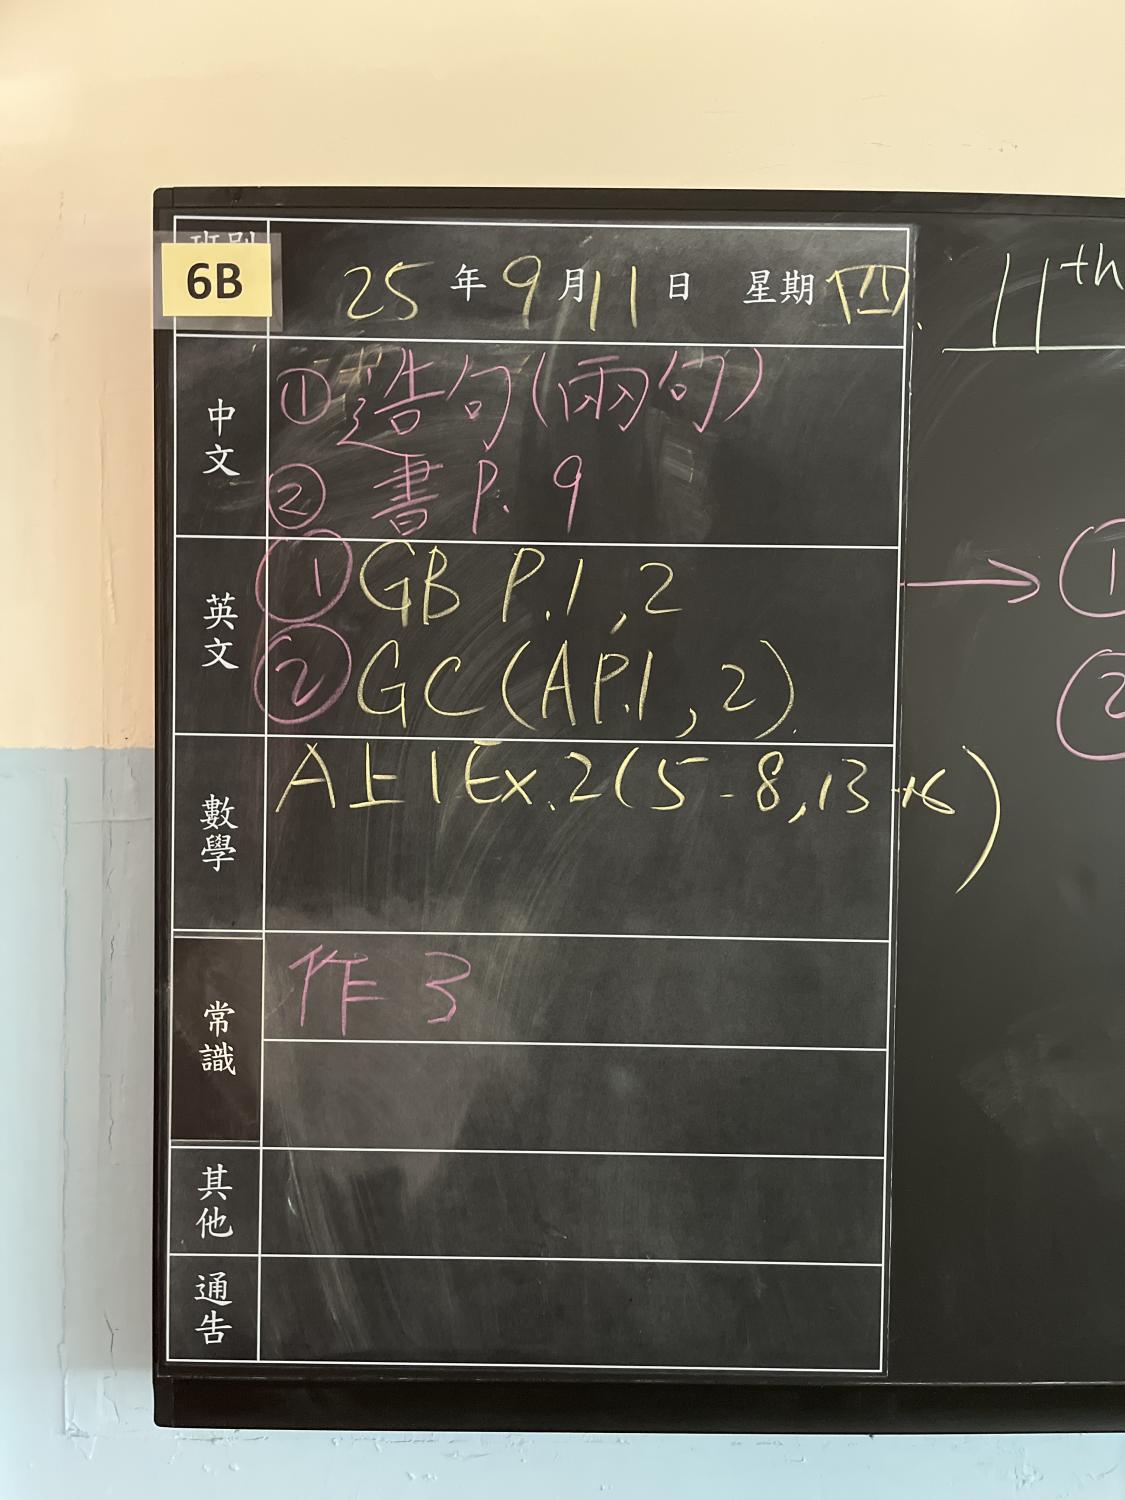 班別
6B
25年9月11日 星期四
11th
中文
①造句(兩句)
②書P.9
英文
①GB P.1,2
→ ①
②GC(AP.1,2)
②
數學
A上1Ex.2(5-8,13-16)
常識
作3
其他
通告